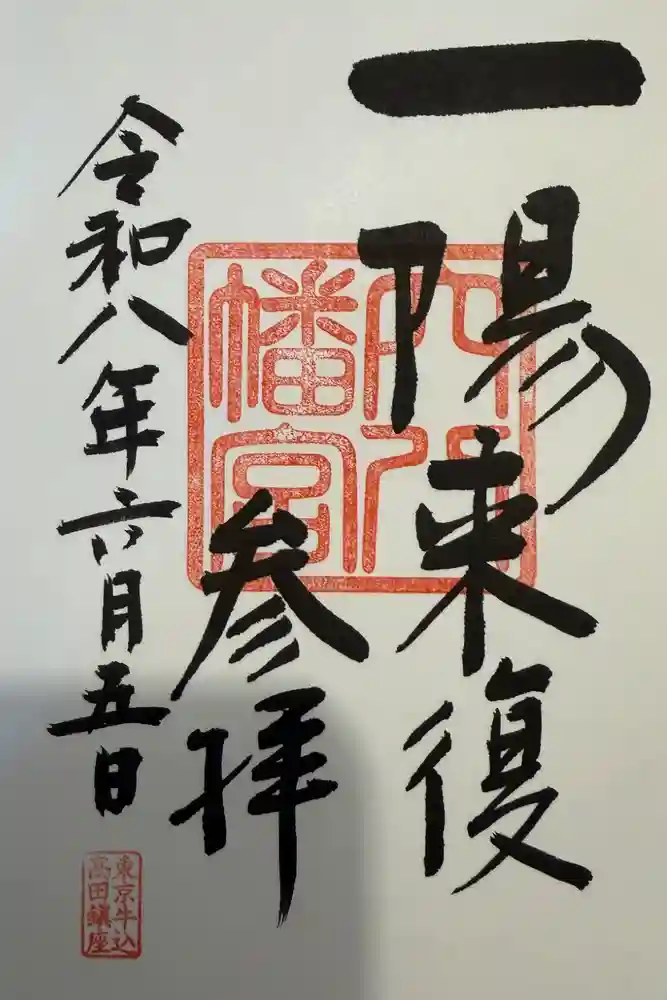 一陽来復
穴八
幡宮
参拝
令和八年六月五日
東京牛込
髙田鎭座